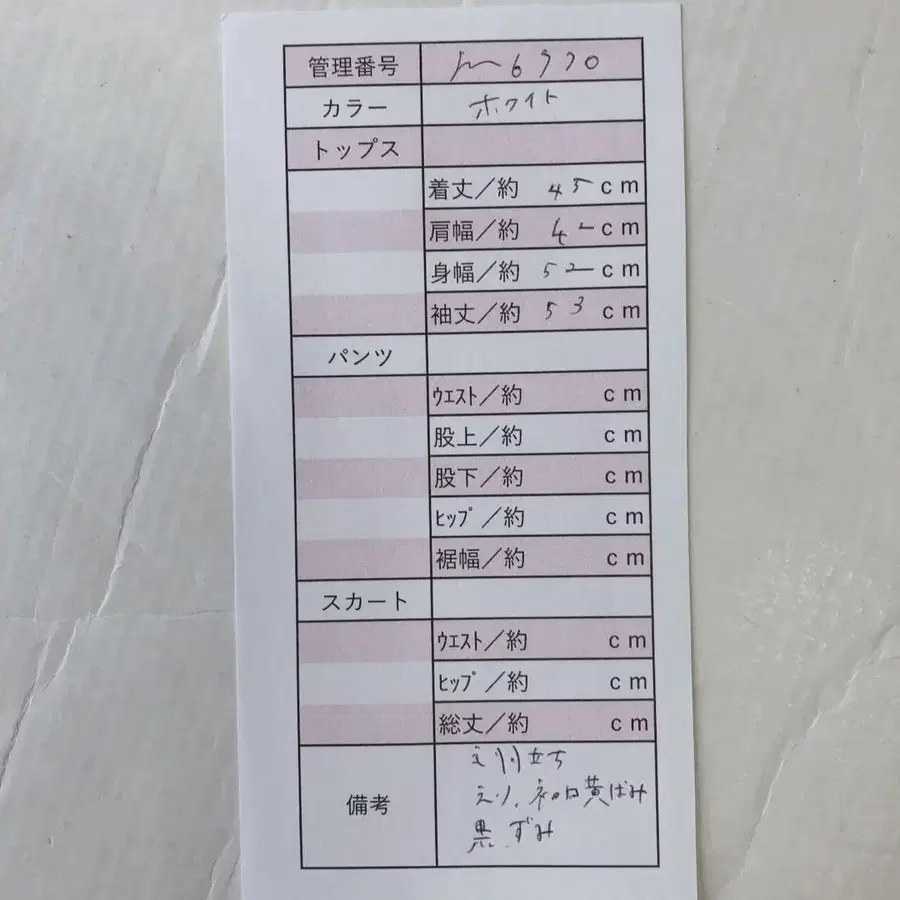 管理番号 m6970
カラー ホワイト
トップス
着丈/約 45 cm
肩幅/約 42 cm
身幅/約 52 cm
袖丈/約 53 cm
パンツ
ウエスト/約 cm
股上/約 cm
股下/約 cm
ヒップ/約 cm
裾幅/約 cm
スカート
ウエスト/約 cm
ヒップ/約 cm
総丈/約 cm
備考
立ち
えり、袖口黄ばみ
黒ずみ